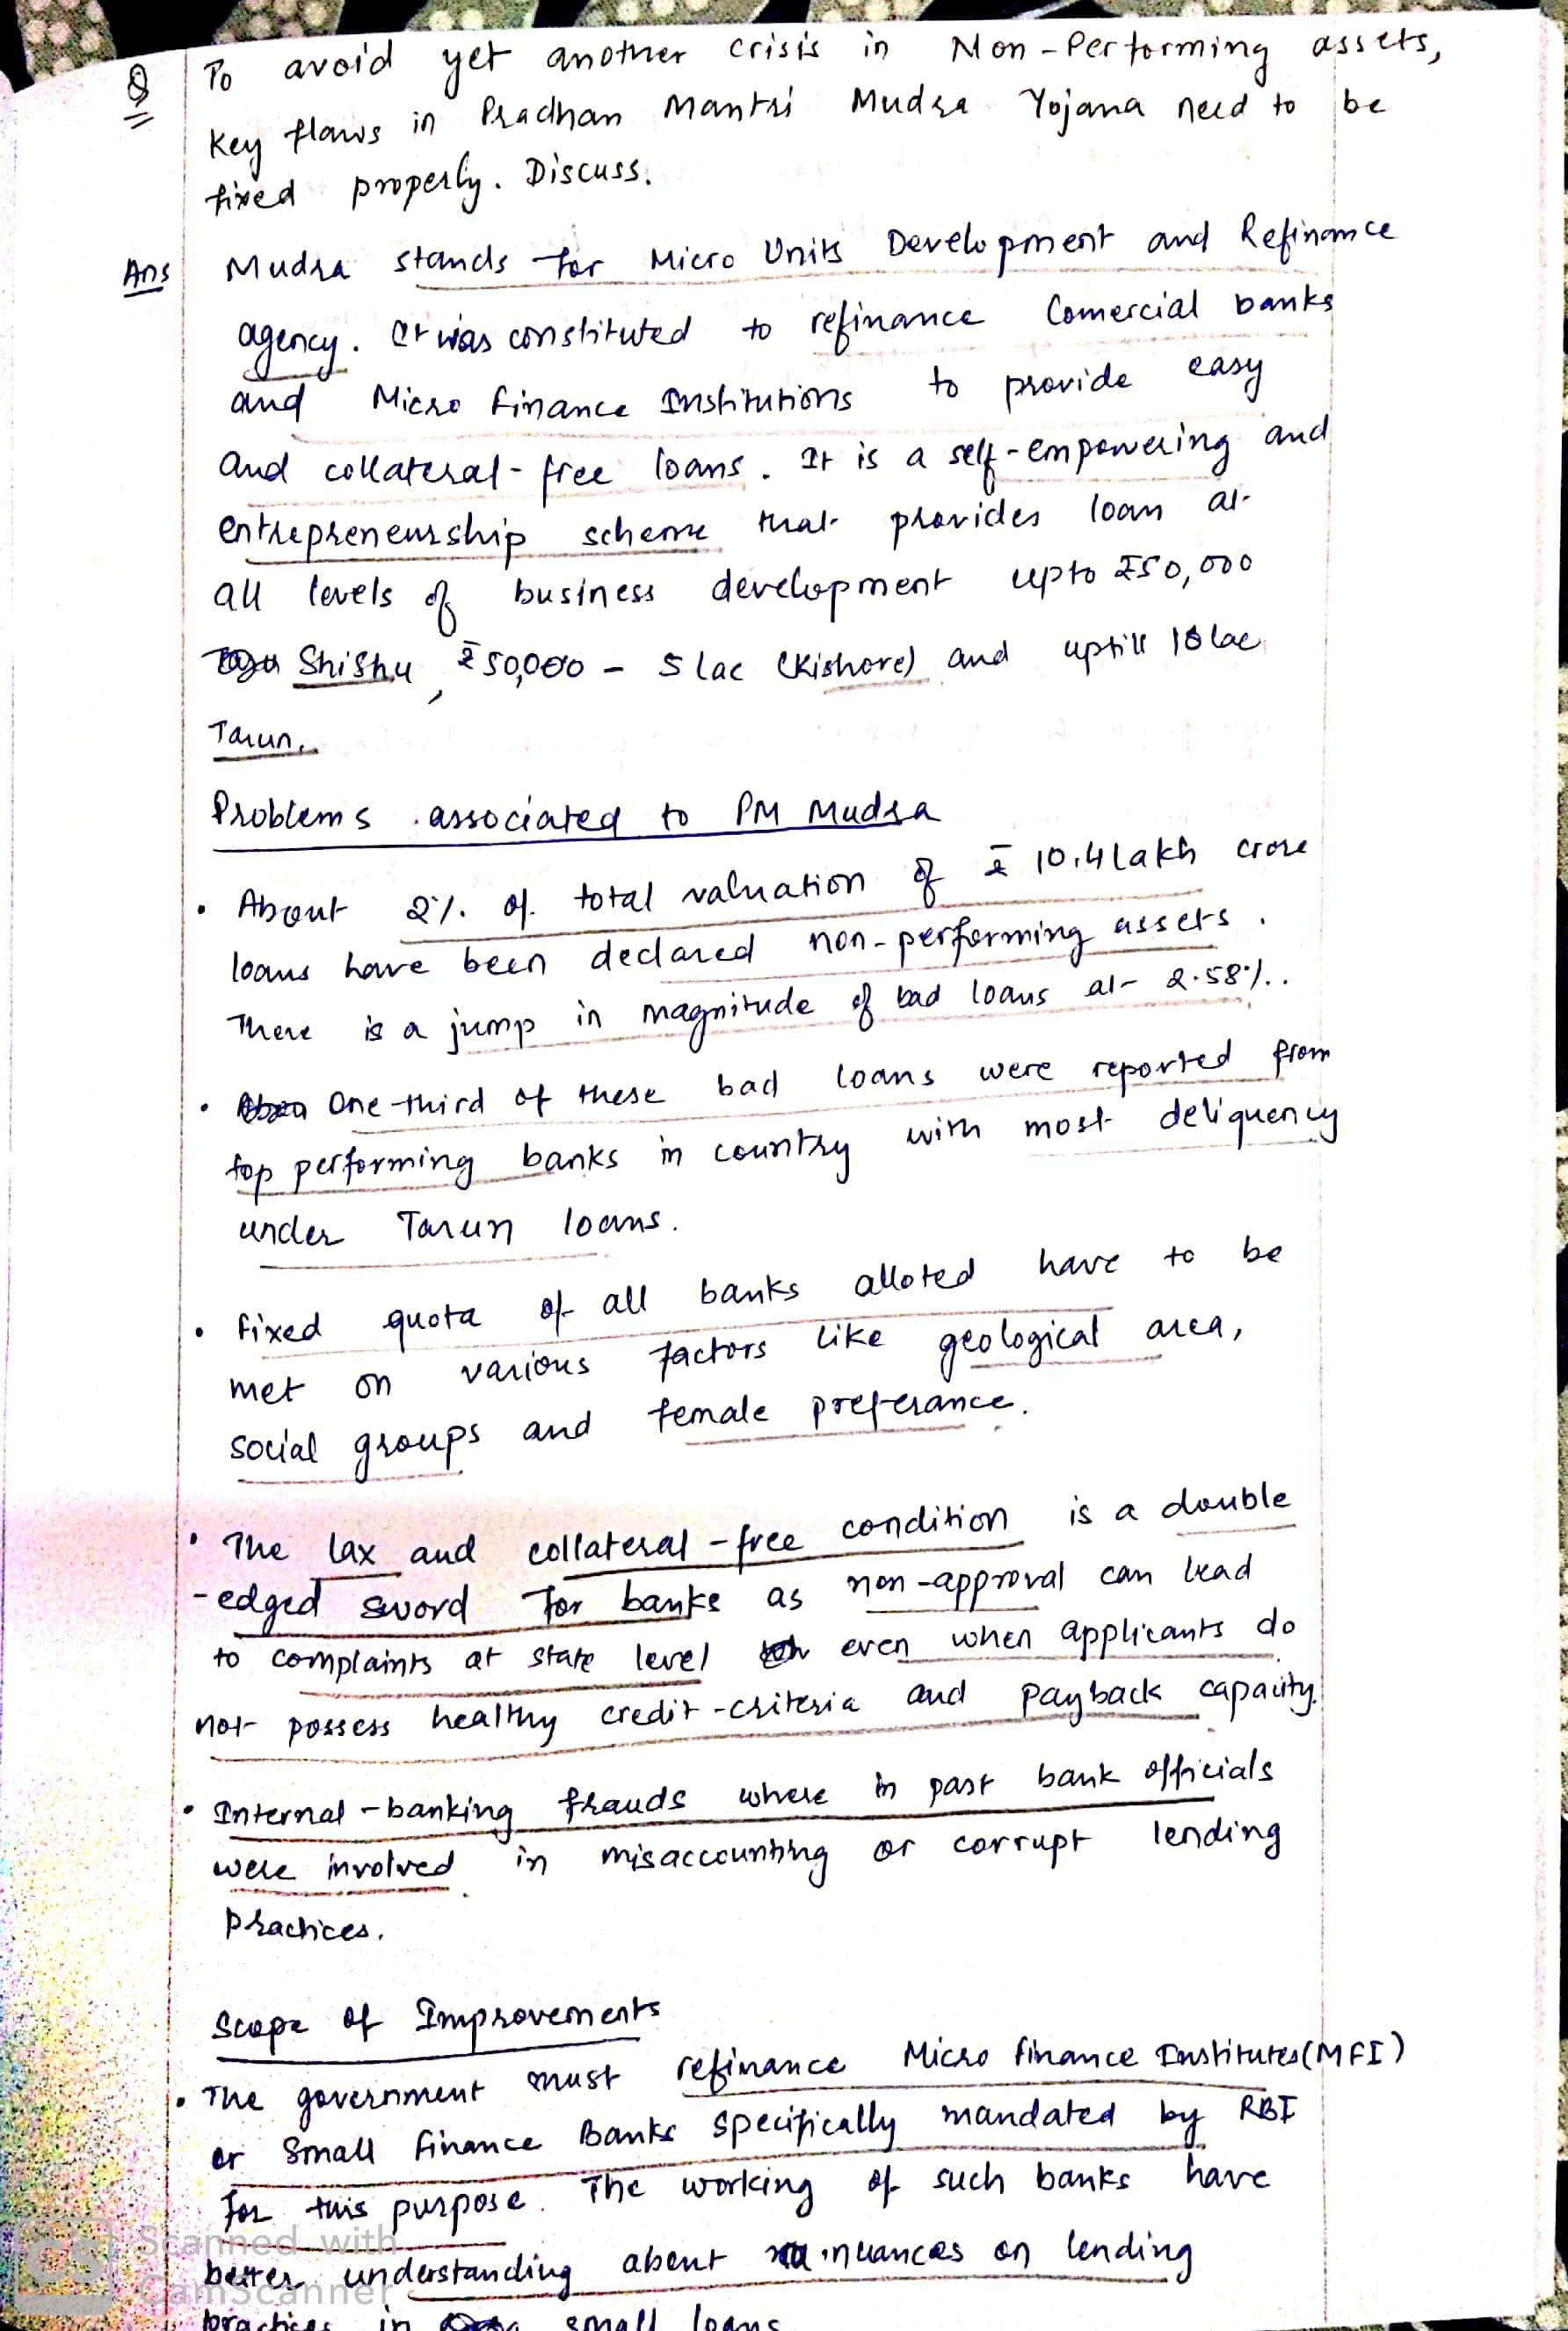 Q To avoid yet another crisis in Non-Performing assets,
Key flaws in Pradhan Mantri Mudra Yojana need to be
fixed properly. Discuss.
Ans Mudra stands for Micro Units Development and Refinance
agency. It was constituted to refinance Comercial banks
and Micro finance Institutions to provide easy
and collateral-free loans. It is a self-empowering and
entrepreneurship scheme that provides loan at
all levels of business development upto ₹50,000
Shishu, ₹50,000 - 5 lac (Kishore) and uptill 10 lac
Tarun.
Problems associated to PM Mudra
• About 2% of total valuation of ₹ 10.4 Lakh crore
loans have been declared non-performing assets.
There is a jump in magnitude of bad loans at 2.58%.
• One-third of these bad loans were reported from
top performing banks in country with most deliquency
under Tarun loans.
• fixed quota of all banks alloted have to be
met on various factors like geological area,
social groups and female preferance.
• The lax and collateral-free condition is a double
-edged sword for banks as non-approval can lead
to complaints at state level even when applicants do
not possess healthy credit-criteria and payback capacity.
• Internal-banking frauds where in past bank officials
were involved in misaccounting or corrupt lending
practices.
Scope of Improvements
• The government must refinance Micro finance Institutes (MFI)
or Small finance Banks specifically mandated by RBI
for this purpose. The working of such banks have
better understanding about nuances on lending
practices in small loans
Scanned with
CamScanner
CS